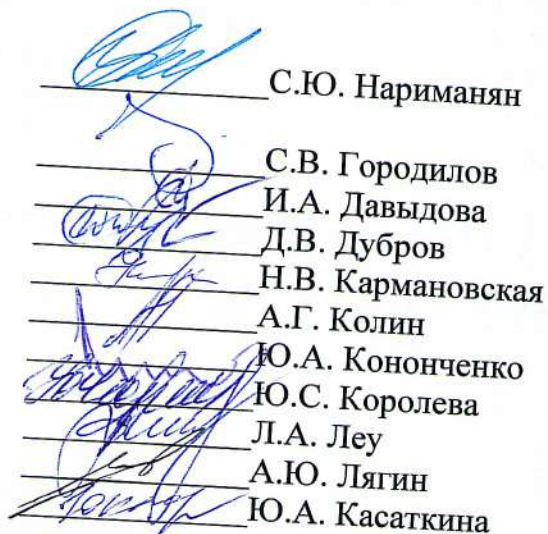 С.Ю. Нариманян
С.В. Городилов
И.А. Давыдова
Д.В. Дубров
Н.В. Кармановская
А.Г. Колин
Ю.А. Кононченко
Ю.С. Королева
Л.А. Леу
А.Ю. Лягин
Ю.А. Касаткина